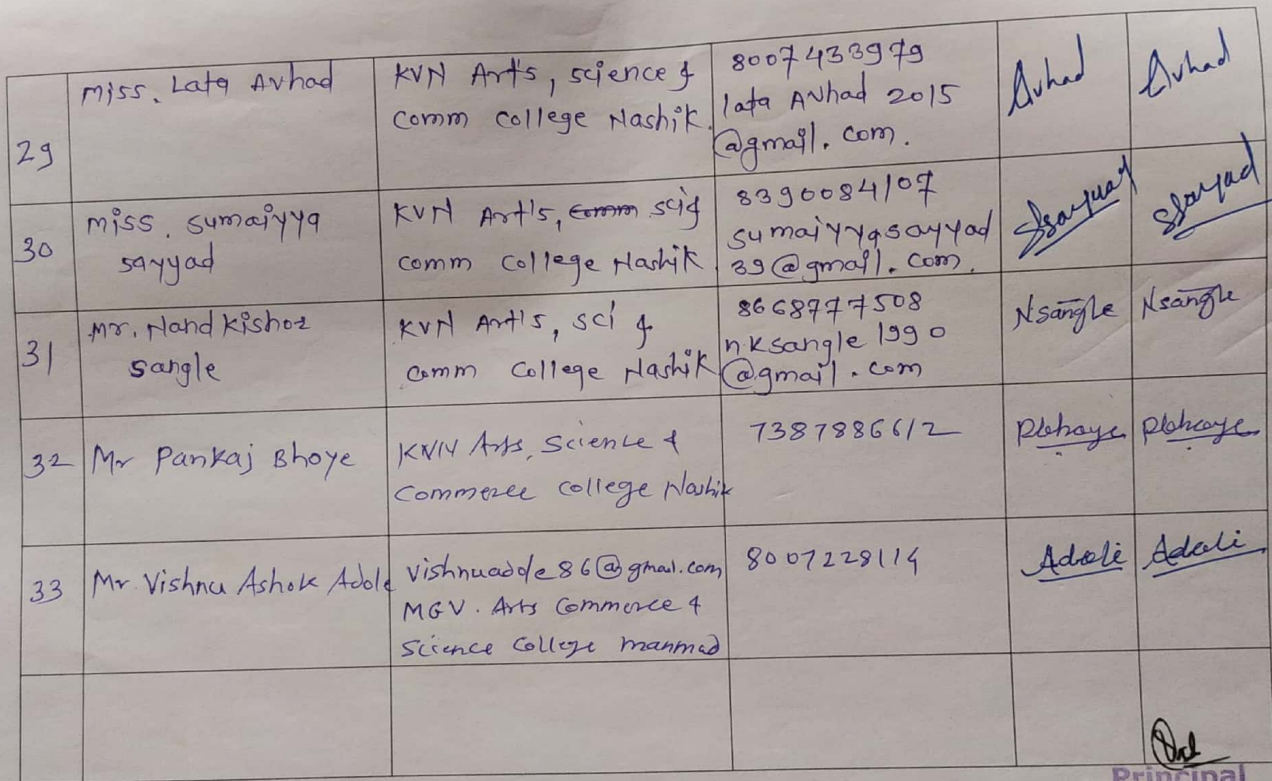 29
Miss. Lata Avhad
KVN Art's, science &
comm college Nashik.
8007433979
lata Avhad 2015
@gmail.com.
Avhad
Avhad
30
Miss. Sumaiyya
sayyad
KVN Art's, comm sci &
comm college Nashik
8390084107
sumaiyyasayyad
39@gmail.com.
Ssayyad
Ssayyad
31
Mr. Nand Kishor
Sangle
KVN Art's, sci &
comm college Nashik
8668777508
n.ksangle 1990
@gmail.com
Nsangle
Nsangle
32
Mr Pankaj Bhoye
KVN Arts, Science &
Commerce college Nashik
7387886612
Pbhoye
Pbhoye
33
Mr. Vishnu Ashok Adole
Vishnuadole86@gmail.com
MGV. Arts Commerce &
Science College Manmad
8007228114
Principal